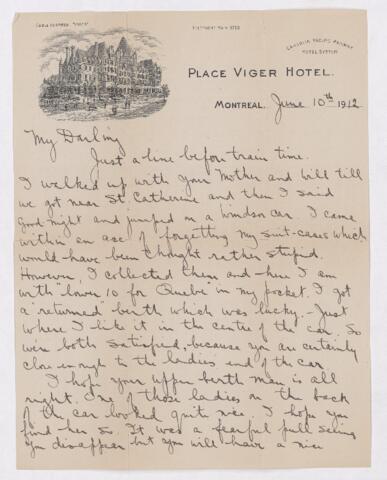 CANADIAN PACIFIC RAILWAY
HOTEL SYSTEM
PLACE VIGER HOTEL.
MONTREAL, June 10th 1912
My Darling
Just a line before train time.
I walked up with your Mother and Will till
we got near St. Catherine and then I said
Good night and jumped on a Windsor car. I came
within an ace of forgetting my suit-cases which
would have been thought rather stupid.
However, I collected them and here I am
with "lower 10 for Quebec" in my pocket. I got
a "returned" berth which was lucky. Just
where I like it in the centre of the car. So
we're both satisfied, because you are certainly
close enough to the ladies end of the car.
I hope your upper berth man is all
right. One of those ladies on the back
of the car looked quite nice. I hope you
find her so. It was a fearful pull seeing
you disappear but you will have a nice